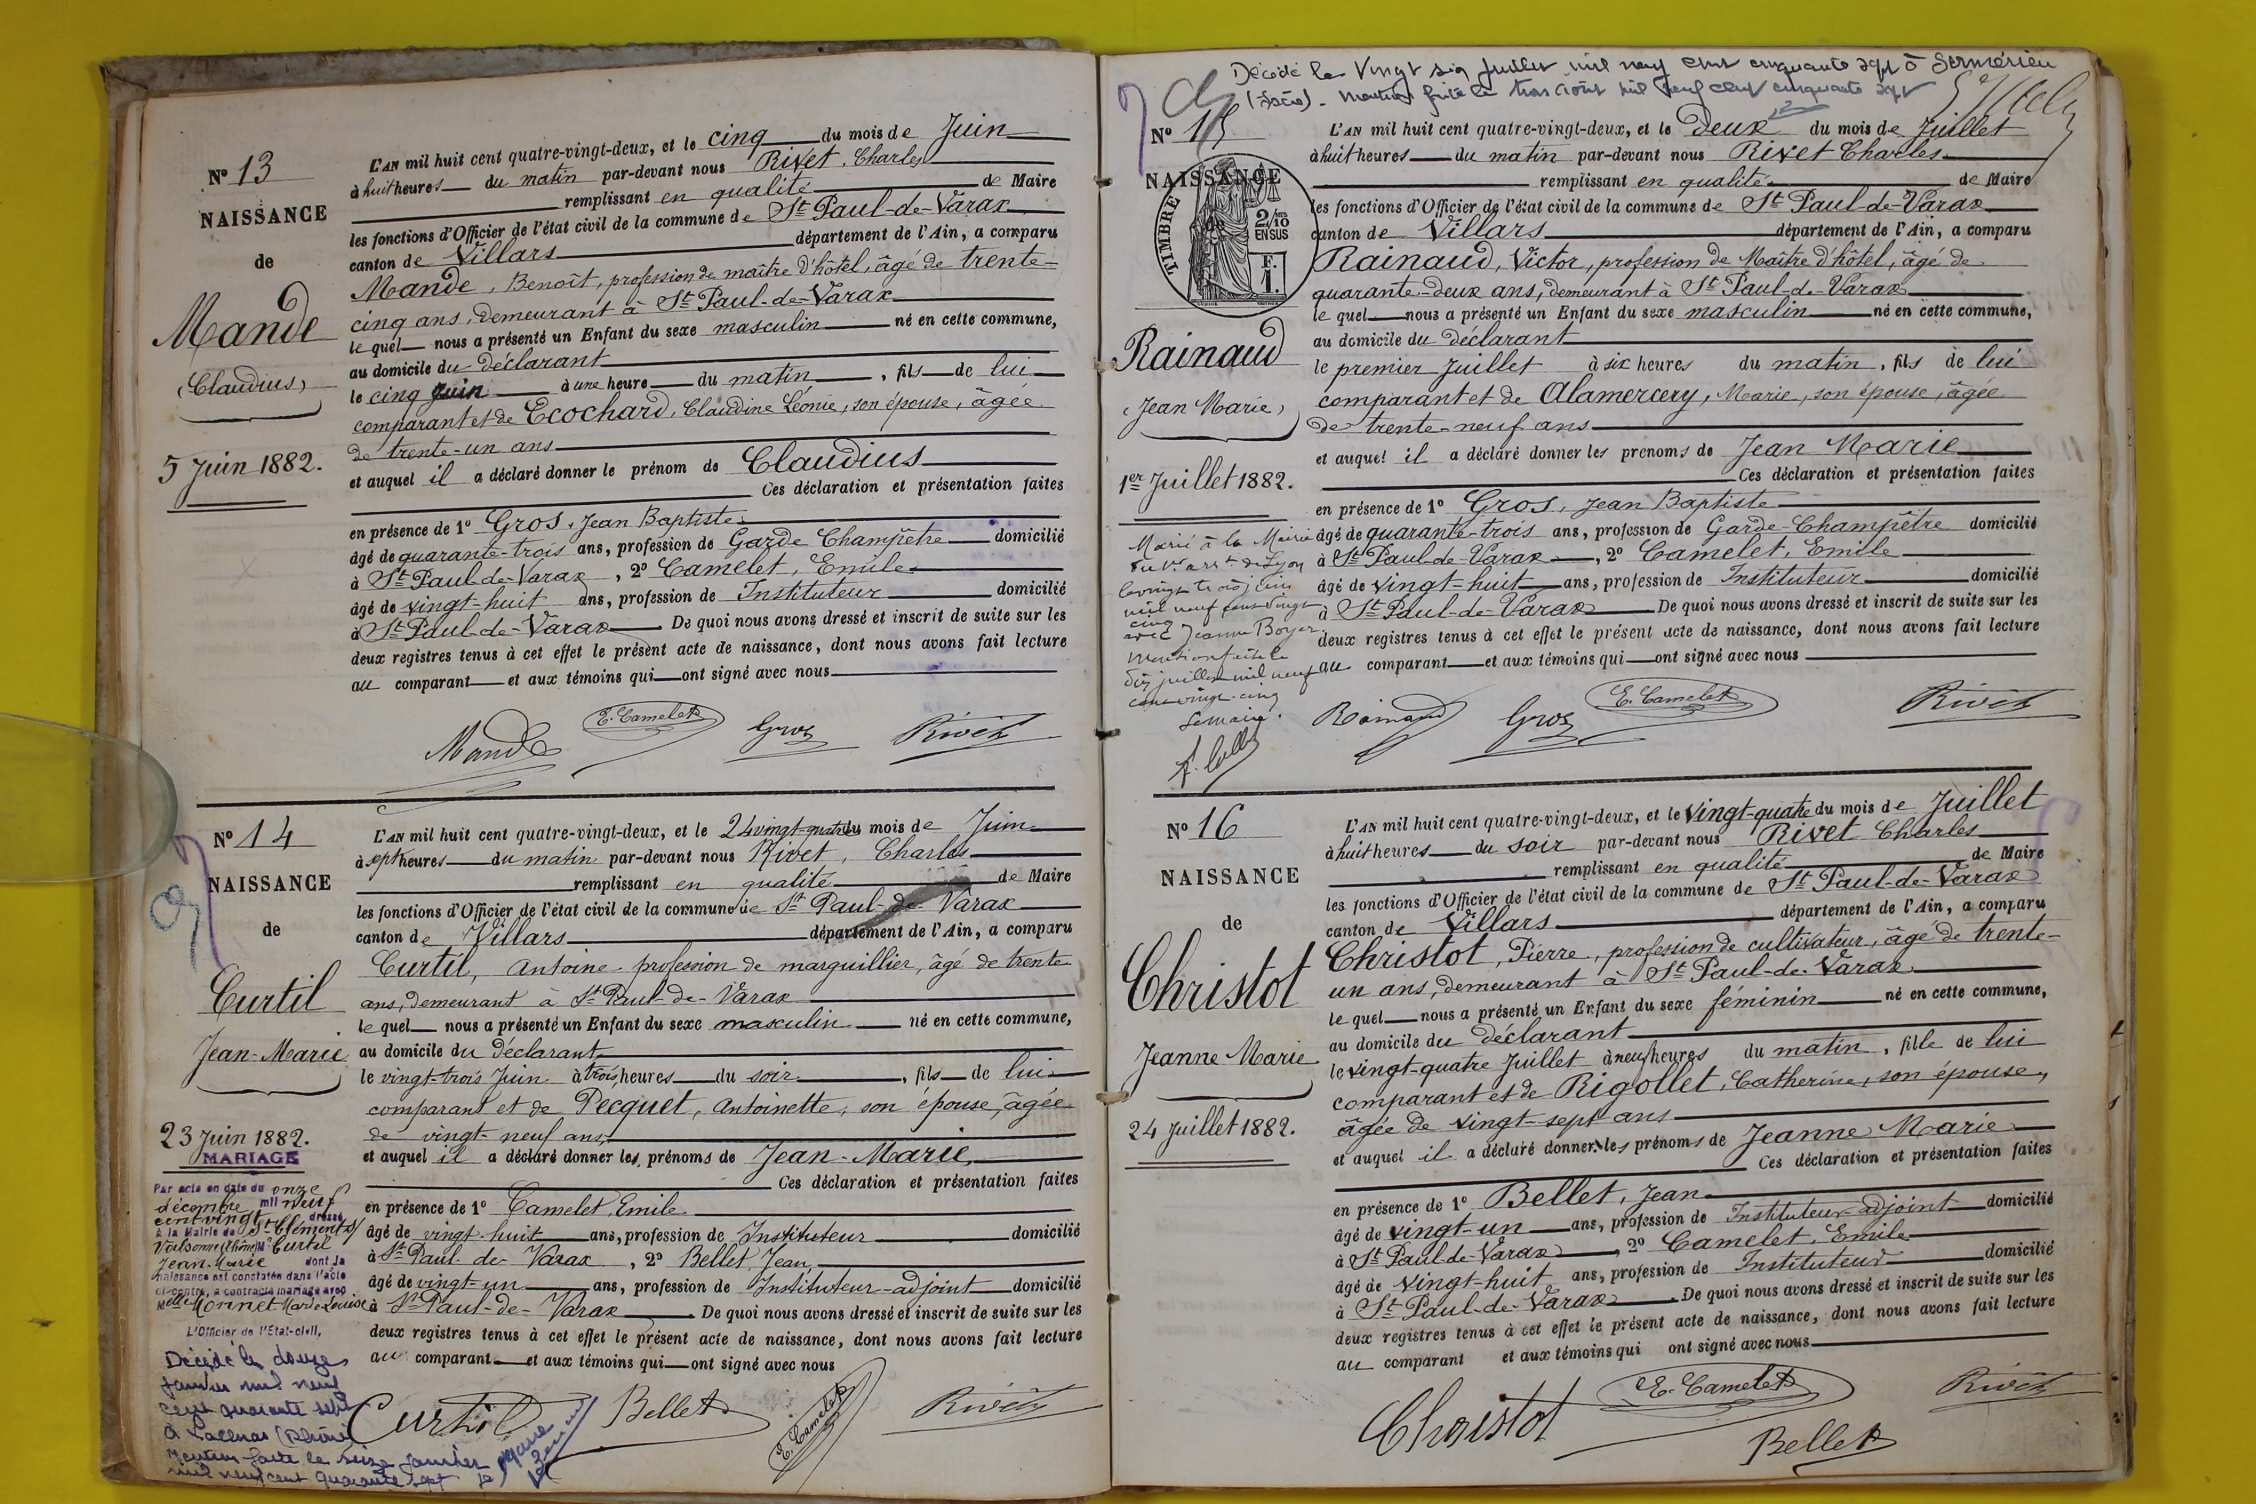 N° 13
NAISSANCE
de
Mande
(Claudius)
5 Juin 1882.
L'AN mil huit cent quatre-vingt-deux, et le cinq du mois de Juin
à huit heures du matin par-devant nous Rivet, Charles
remplissant en qualité de Maire
les fonctions d'Officier de l'état civil de la commune de St Paul-de-Varax
canton de Villars département de l'Ain, a comparu
Mande, Benoît, profession de maître d'hôtel, âgé de trente-
cinq ans, demeurant à St Paul-de-Varax
le quel nous a présenté un Enfant du sexe masculin né en cette commune,
au domicile du déclarant
le cinq Juin à une heure du matin, fils de lui
comparant et de Ecochard, Claudine Léonie, son épouse, âgée
de trente-un ans
et auquel il a déclaré donner le prénom de Claudius
Ces déclaration et présentation faites
en présence de 1° Gros, Jean Baptiste
âgé de quarante-trois ans, profession de Garde Champêtre domicilié
à St Paul-de-Varax, 2° Camelet, Emile
âgé de vingt-huit ans, profession de Instituteur domicilié
à St Paul-de-Varax. De quoi nous avons dressé et inscrit de suite sur les
deux registres tenus à cet effet le présent acte de naissance, dont nous avons fait lecture
au comparant et aux témoins qui ont signé avec nous
Mande E. Camelet Gros Rivet
N° 14
NAISSANCE
de
Curtil
Jean-Marie
23 Juin 1882.
MARIAGE
Par acte en date du onze
décembre mil neuf
cent vingt dressé
à la Mairie de St Clément s/
Valsonne (Rhône) Mr Curtil
Jean-Marie dont la
naissance est constatée dans l'acte
ci-contre, a contracté mariage avec
Melle Monnet Marie Louise
L'Officier de l'Etat-civil,
Décédé le douze
janvier mil neuf
cent quarante sept
à Lacenas (Rhône)
Mention faite le seize janvier
mil neuf cent quarante sept
L'AN mil huit cent quatre-vingt-deux, et le 24 vingt-quatre du mois de Juin
à sept heures du matin par-devant nous Rivet, Charles
remplissant en qualité de Maire
les fonctions d'Officier de l'état civil de la commune de St Paul-de-Varax
canton de Villars département de l'Ain, a comparu
Curtil, Antoine profession de marguillier, âgé de trente
ans, demeurant à St Paul-de-Varax
le quel nous a présenté un Enfant du sexe masculin né en cette commune,
au domicile du déclarant
le vingt-trois Juin à trois heures du soir, fils de lui
comparant et de Pecquet, Antoinette, son épouse, âgée
de vingt-neuf ans,
et auquel il a déclaré donner les prénoms de Jean-Marie
Ces déclaration et présentation faites
en présence de 1° Camelet, Emile
âgé de vingt-huit ans, profession de Instituteur domicilié
à St Paul-de-Varax, 2° Bellet, Jean,
âgé de vingt-un ans, profession de Instituteur-adjoint domicilié
à St Paul-de-Varax. De quoi nous avons dressé et inscrit de suite sur les
deux registres tenus à cet effet le présent acte de naissance, dont nous avons fait lecture
au comparant et aux témoins qui ont signé avec nous
Curtil Bellet E. Camelet Rivet
Décédé le vingt six juillet mil neuf cent cinquante sept à Sermérieu
(Isère). Mention faite le trois août mil neuf cent cinquante sept
N° 15
NAISSANCE
TIMBRE
2/10 EN SUS
F. 1.
Rainaud
(Jean Marie)
1er Juillet 1882.
Marié à la Mairie
du Ve arrt de Lyon
le vingt trois juin
mil neuf cent vingt
cinq
avec Jeanne Boyer
Mention faite le
dix juillet mil neuf
cent vingt-cinq
Le maire.
L'AN mil huit cent quatre-vingt-deux, et le deux du mois de Juillet
à huit heures du matin par-devant nous Rivet Charles
remplissant en qualité de Maire
les fonctions d'Officier de l'état civil de la commune de St Paul-de-Varax
canton de Villars département de l'Ain, a comparu
Rainaud, Victor, profession de Maître d'hôtel, âgé de
quarante-deux ans, demeurant à St Paul-de-Varax
le quel nous a présenté un Enfant du sexe masculin né en cette commune,
au domicile du déclarant
le premier Juillet à six heures du matin, fils de lui
comparant et de Alamercery, Marie, son épouse, âgée
de trente-neuf ans
et auquel il a déclaré donner les prénoms de Jean Marie
Ces déclaration et présentation faites
en présence de 1° Gros, Jean Baptiste
âgé de quarante-trois ans, profession de Garde-Champêtre domicilié
à St Paul-de-Varax, 2° Camelet, Emile
âgé de vingt-huit ans, profession de Instituteur domicilié
à St Paul-de-Varax De quoi nous avons dressé et inscrit de suite sur les
deux registres tenus à cet effet le présent acte de naissance, dont nous avons fait lecture
au comparant et aux témoins qui ont signé avec nous
Rainaud Gros E. Camelet Rivet
N° 16
NAISSANCE
de
Christot
Jeanne Marie
24 Juillet 1882.
L'AN mil huit cent quatre-vingt-deux, et le vingt-quatre du mois de Juillet
à huit heures du soir par-devant nous Rivet Charles
remplissant en qualité de Maire
les fonctions d'Officier de l'état civil de la commune de St Paul-de-Varax
canton de Villars département de l'Ain, a comparu
Christot, Pierre, profession de cultivateur, âgé de trente-
un ans, demeurant à St Paul-de-Varax
le quel nous a présenté un Enfant du sexe féminin né en cette commune,
au domicile du déclarant
le vingt-quatre Juillet à neuf heures du matin, fille de lui
comparant et de Rigollet, Catherine, son épouse,
âgée de vingt-sept ans
et auquel il a déclaré donner les prénoms de Jeanne Marie
Ces déclaration et présentation faites
en présence de 1° Bellet, Jean
âgé de vingt-un ans, profession de Instituteur-adjoint domicilié
à St Paul-de-Varax, 2° Camelet, Emile
âgé de vingt-huit ans, profession de Instituteur domicilié
à St Paul-de-Varax. De quoi nous avons dressé et inscrit de suite sur les
deux registres tenus à cet effet le présent acte de naissance, dont nous avons fait lecture
au comparant et aux témoins qui ont signé avec nous
Christot E. Camelet Bellet Rivet